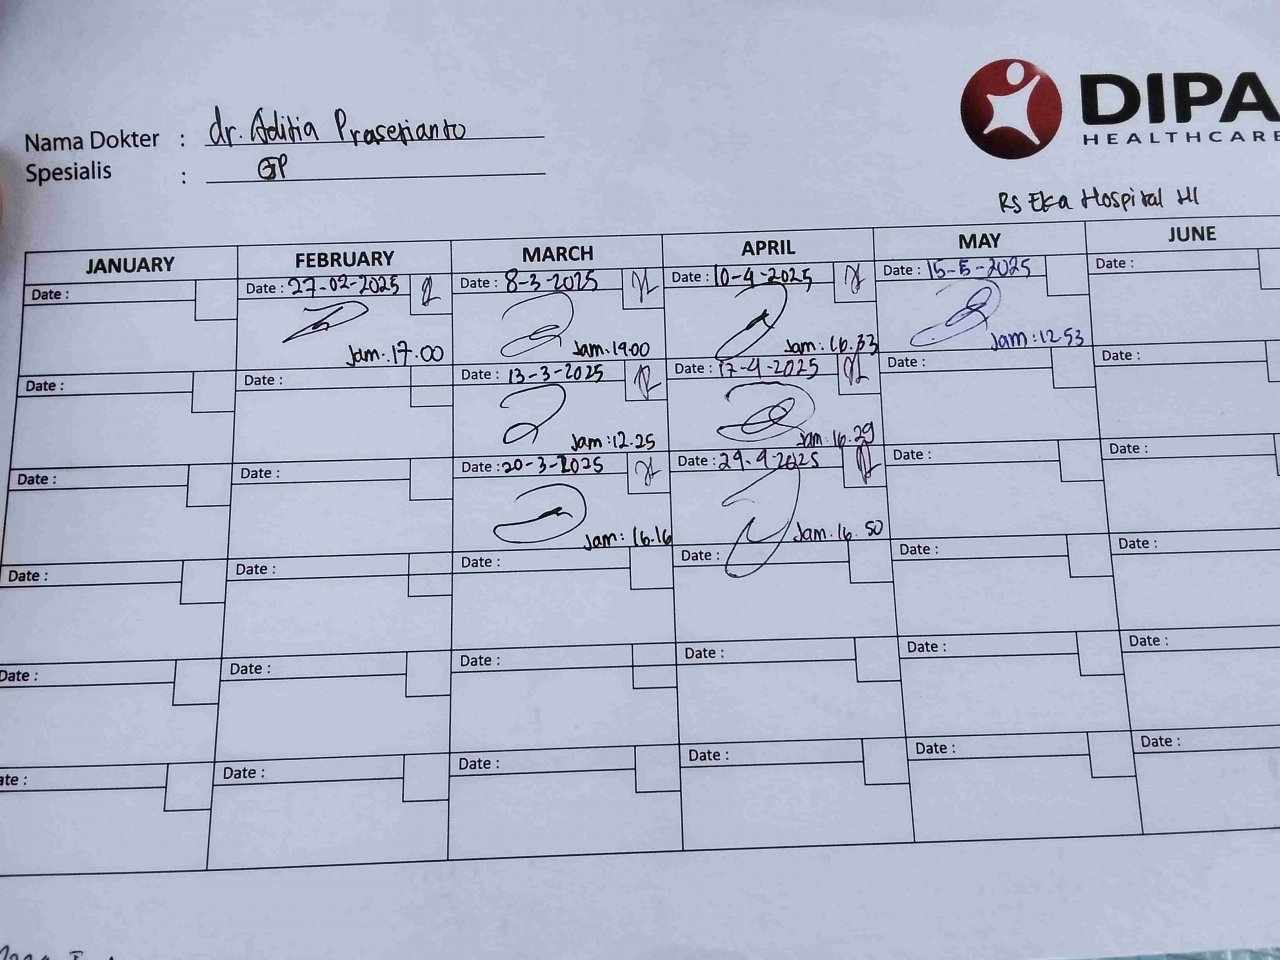 DIPA
HEALTHCARE
Nama Dokter : dr. Aditia Prasetianto
Spesialis : GP
RS Eka Hospital HI
JANUARY FEBRUARY MARCH APRIL MAY JUNE
Date : Date : 27-02-2025 Date : 8-3-2025 Date : 10-4-2025 Date : 15-5-2025 Date :
Jam: 17.00 Jam. 19.00 Jam: 16.33 Jam: 12.53
Date : Date : Date : 13-3-2025 Date : 17-4-2025 Date : Date :
Jam: 12.25 Jam. 16.29
Date : Date : Date : 20-3-2025 Date : 29.4-2025 Date : Date :
Jam: 16.16 Jam. 16.50
Date : Date : Date : Date : Date : Date :
Date : Date : Date : Date : Date : Date :
ate : Date : Date : Date : Date : Date :